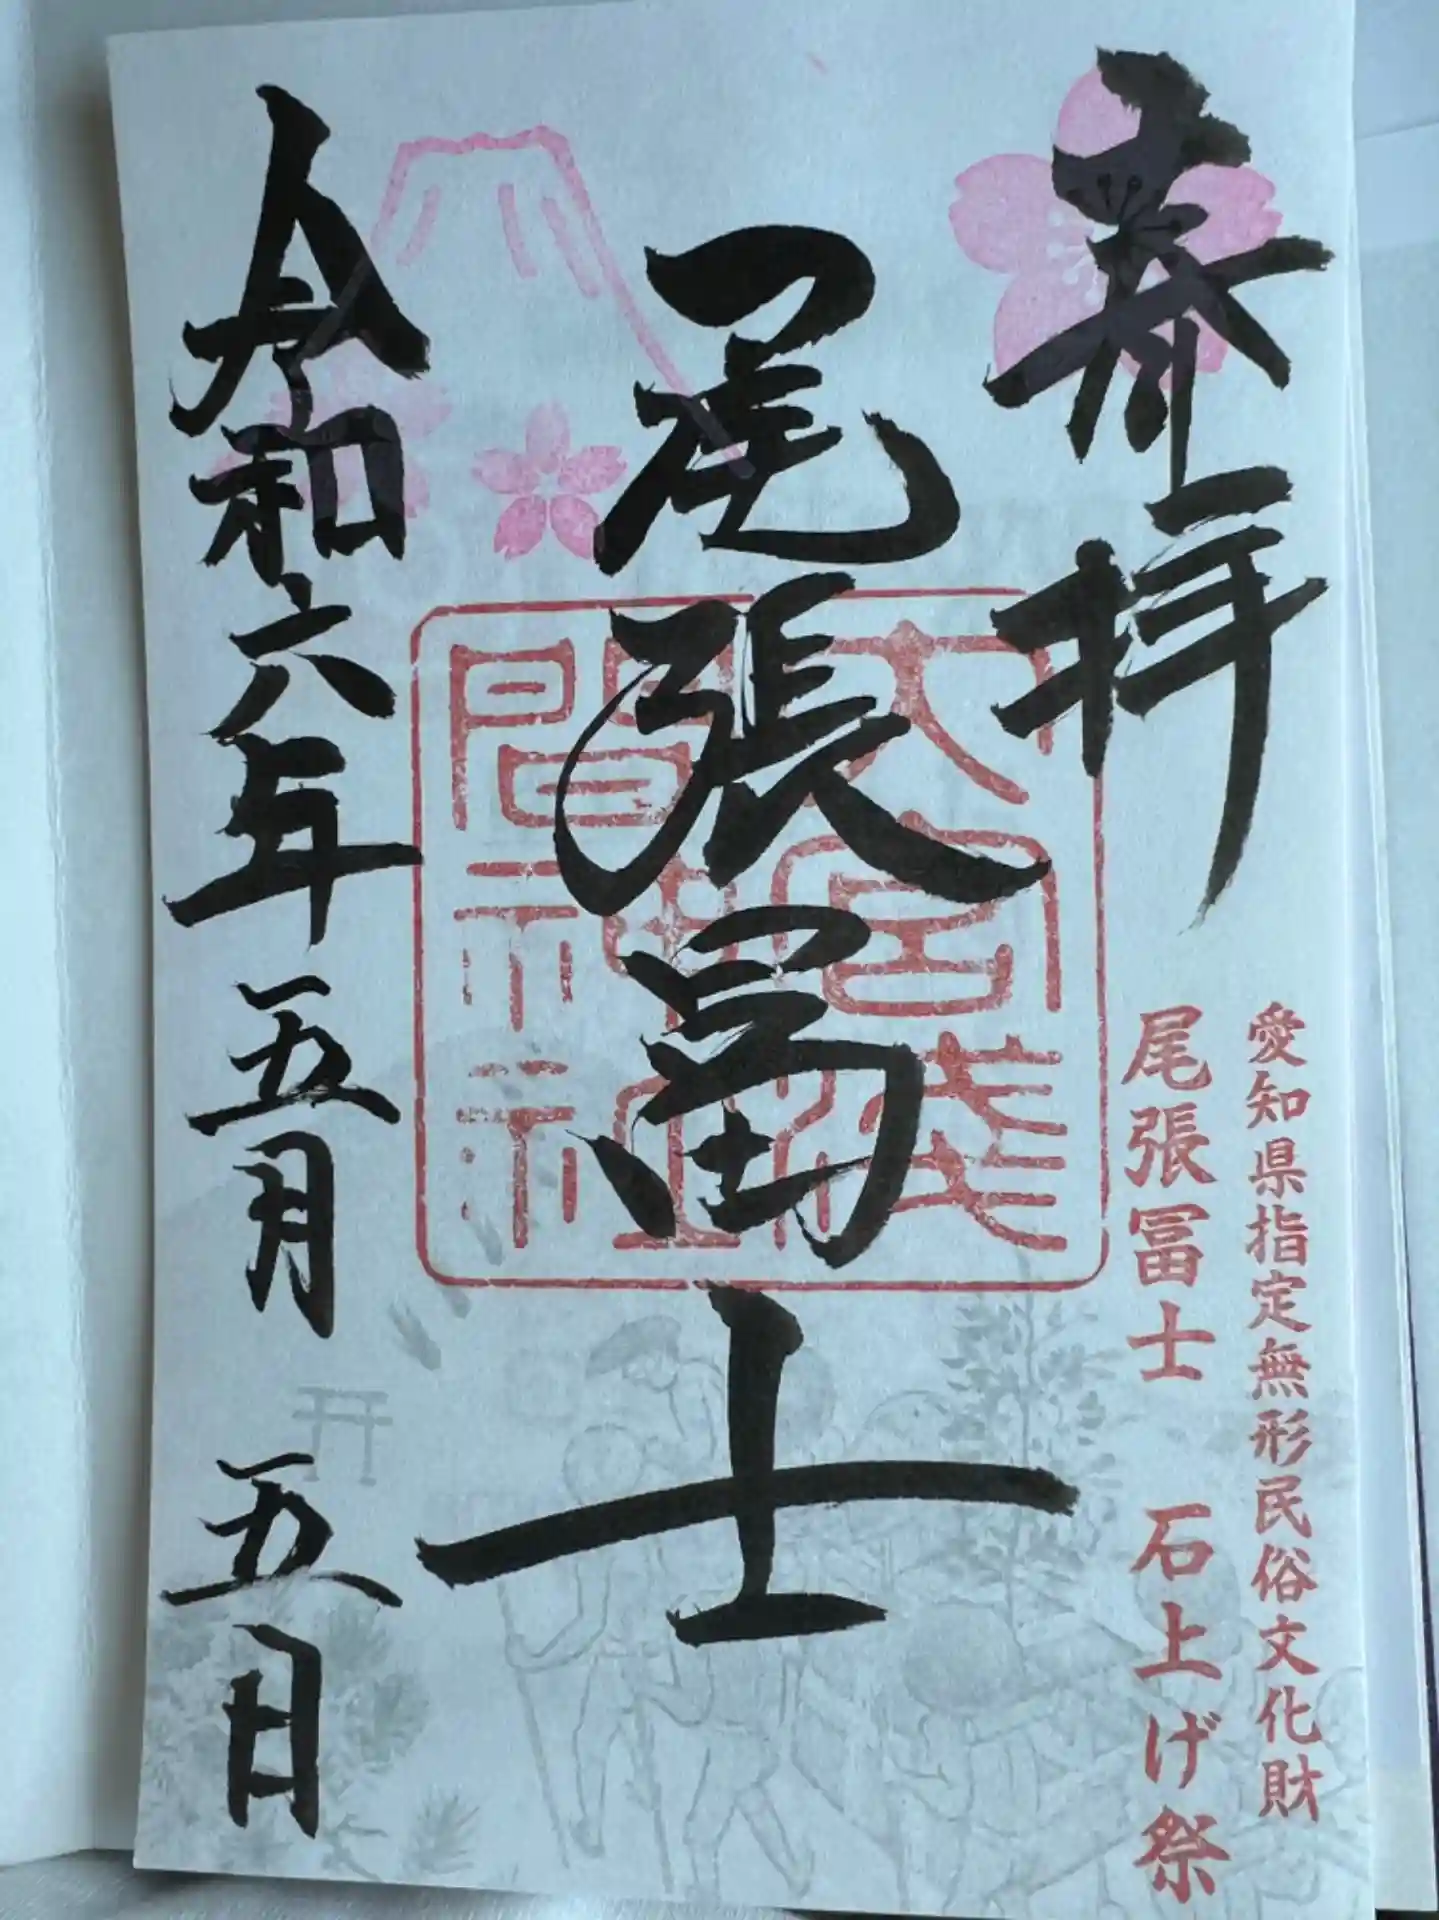 奉拝
愛知県指定無形民俗文化財
尾張冨士 石上げ祭
尾張冨士
大宮浅
間神社
令和六年五月五日